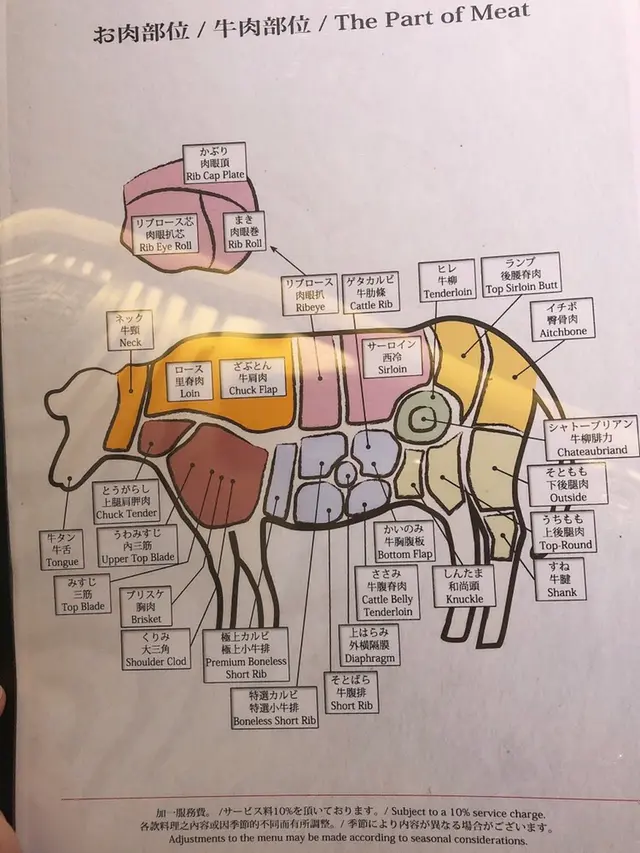 お肉部位 / 牛肉部位 / The Part of Meat
かぶり
肉眼頂
Rib Cap Plate
リブロース芯
肉眼扒芯
Rib Eye Roll
まき
肉眼巻
Rib Roll
リブロース
肉眼扒
Ribeye
ゲタカルビ
牛肋條
Cattle Rib
ヒレ
牛柳
Tenderloin
ランプ
後腰脊肉
Top Sirloin Butt
イチボ
臀骨肉
Aitchbone
ネック
牛頸
Neck
ロース
里脊肉
Loin
ざぶとん
牛肩肉
Chuck Flap
サーロイン
西冷
Sirloin
シャトーブリアン
牛柳腓力
Chateaubriand
そともも
下後腿肉
Outside
うちもも
上後腿肉
Top-Round
すね
牛腱
Shank
とうがらし
上腿肩胛肉
Chuck Tender
牛タン
牛舌
Tongue
うわみすじ
內三筋
Upper Top Blade
みすじ
三筋
Top Blade
ブリスケ
胸肉
Brisket
くりみ
大三角
Shoulder Clod
極上カルビ
極上小牛排
Premium Boneless
Short Rib
特選カルビ
特選小牛排
Boneless Short Rib
かいのみ
牛胸腹板
Bottom Flap
ささみ
牛腹脊肉
Cattle Belly
Tenderloin
しんたま
和尚頭
Knuckle
上はらみ
外橫隔膜
Diaphragm
そとばら
牛腹排
Short Rib
加一服務費。 /サービス料10%を頂いております。/ Subject to a 10% service charge.
各款料理之內容或因季節的不同而有所調整。/ 季節により内容が異なる場合がございます。
Adjustments to the menu may be made according to seasonal considerations.